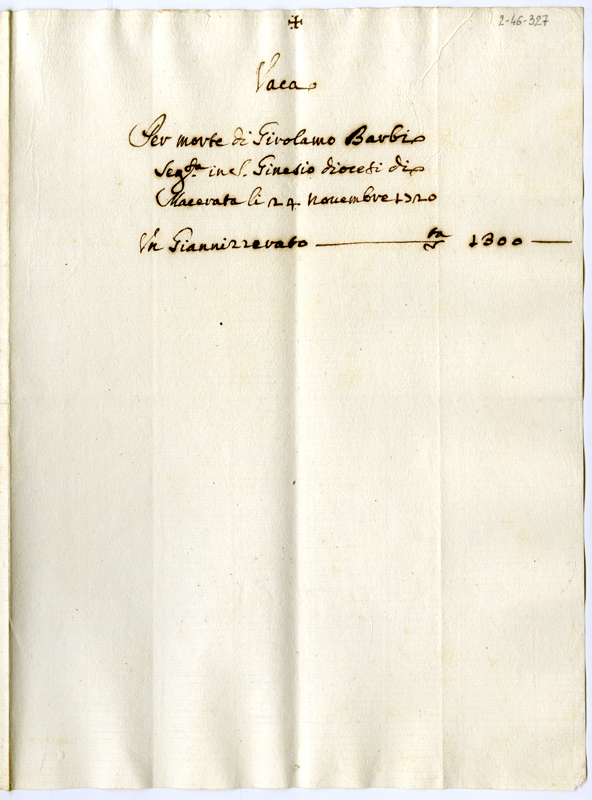 ✠
2-46-327
Vaca
Per morte di Girolamo Barbi
Seg.ta in S. Ginesio diocesi di
Macerata li 24 Novembre 1720
Un Giannizzerato — 1300 —